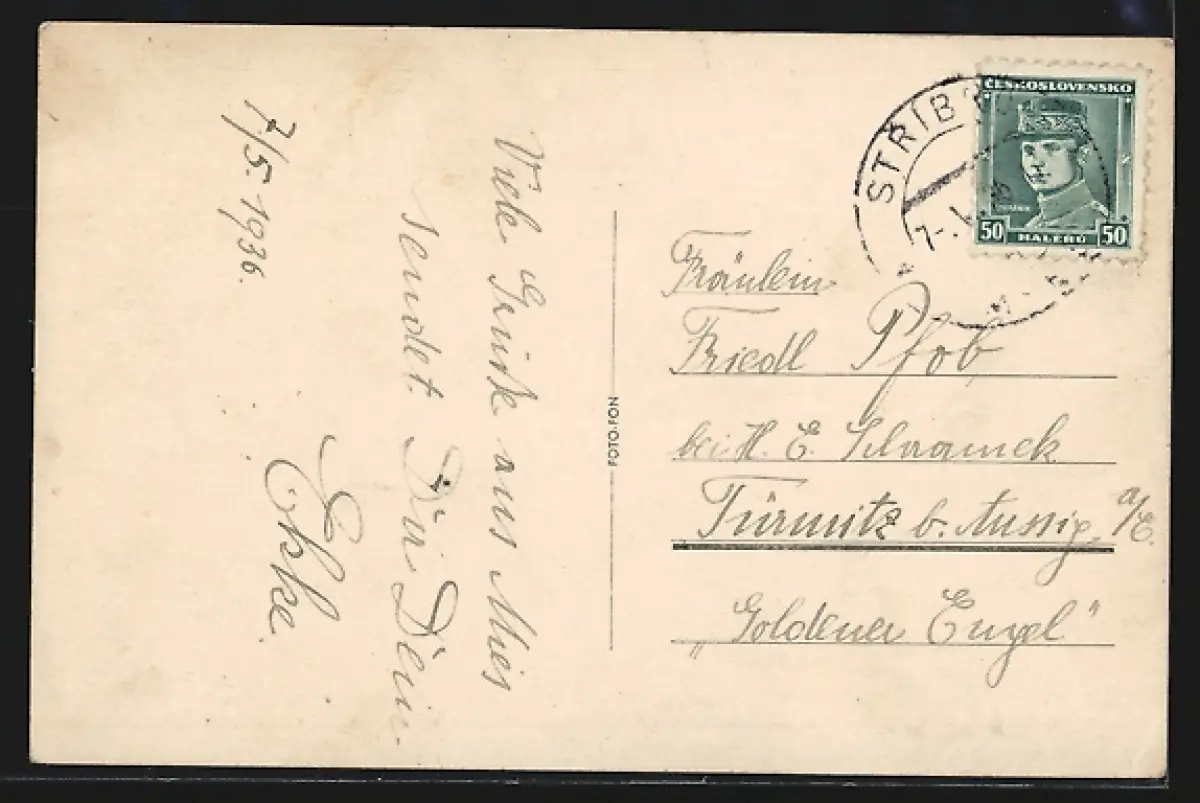 7/5. 1936.
Viele Grüße aus Mies
sendet Dir Dein
FOTO-FON
STŘÍBRO
ČESKOSLOVENSKO
50 HALÉŘŮ 50
Fräulein
Friedl Pfob
bei H. E. Schramek
Türmitz b. Aussig, a/E.
"Goldener Engel"